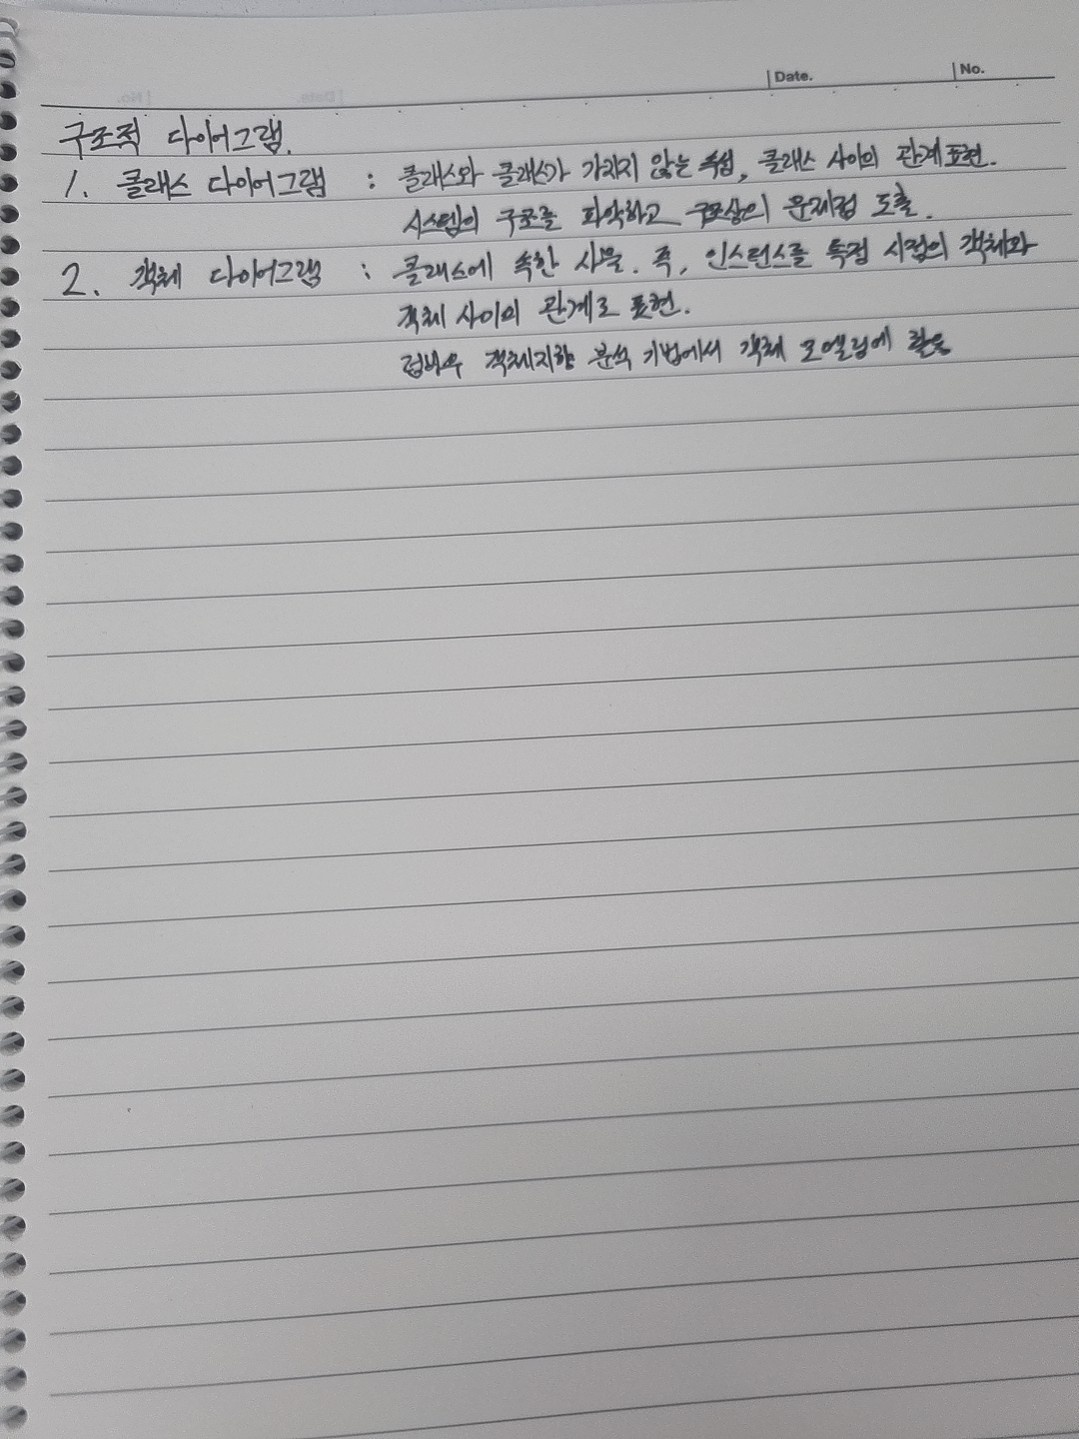 Date. No.
구조적 다이어그램.
1. 클래스 다이어그램 : 클래스와 클래스가 가지지 않는 속성, 클래스 사이의 관계 표현.
시스템의 구조를 파악하고 구조상의 문제점 도출.
2. 객체 다이어그램 : 클래스에 속한 사물. 즉, 인스턴스를 특정 시점의 객체와
객체 사이의 관계로 표현.
럼바우 객체지향 분석 기법에서 객체 모델링에 활용